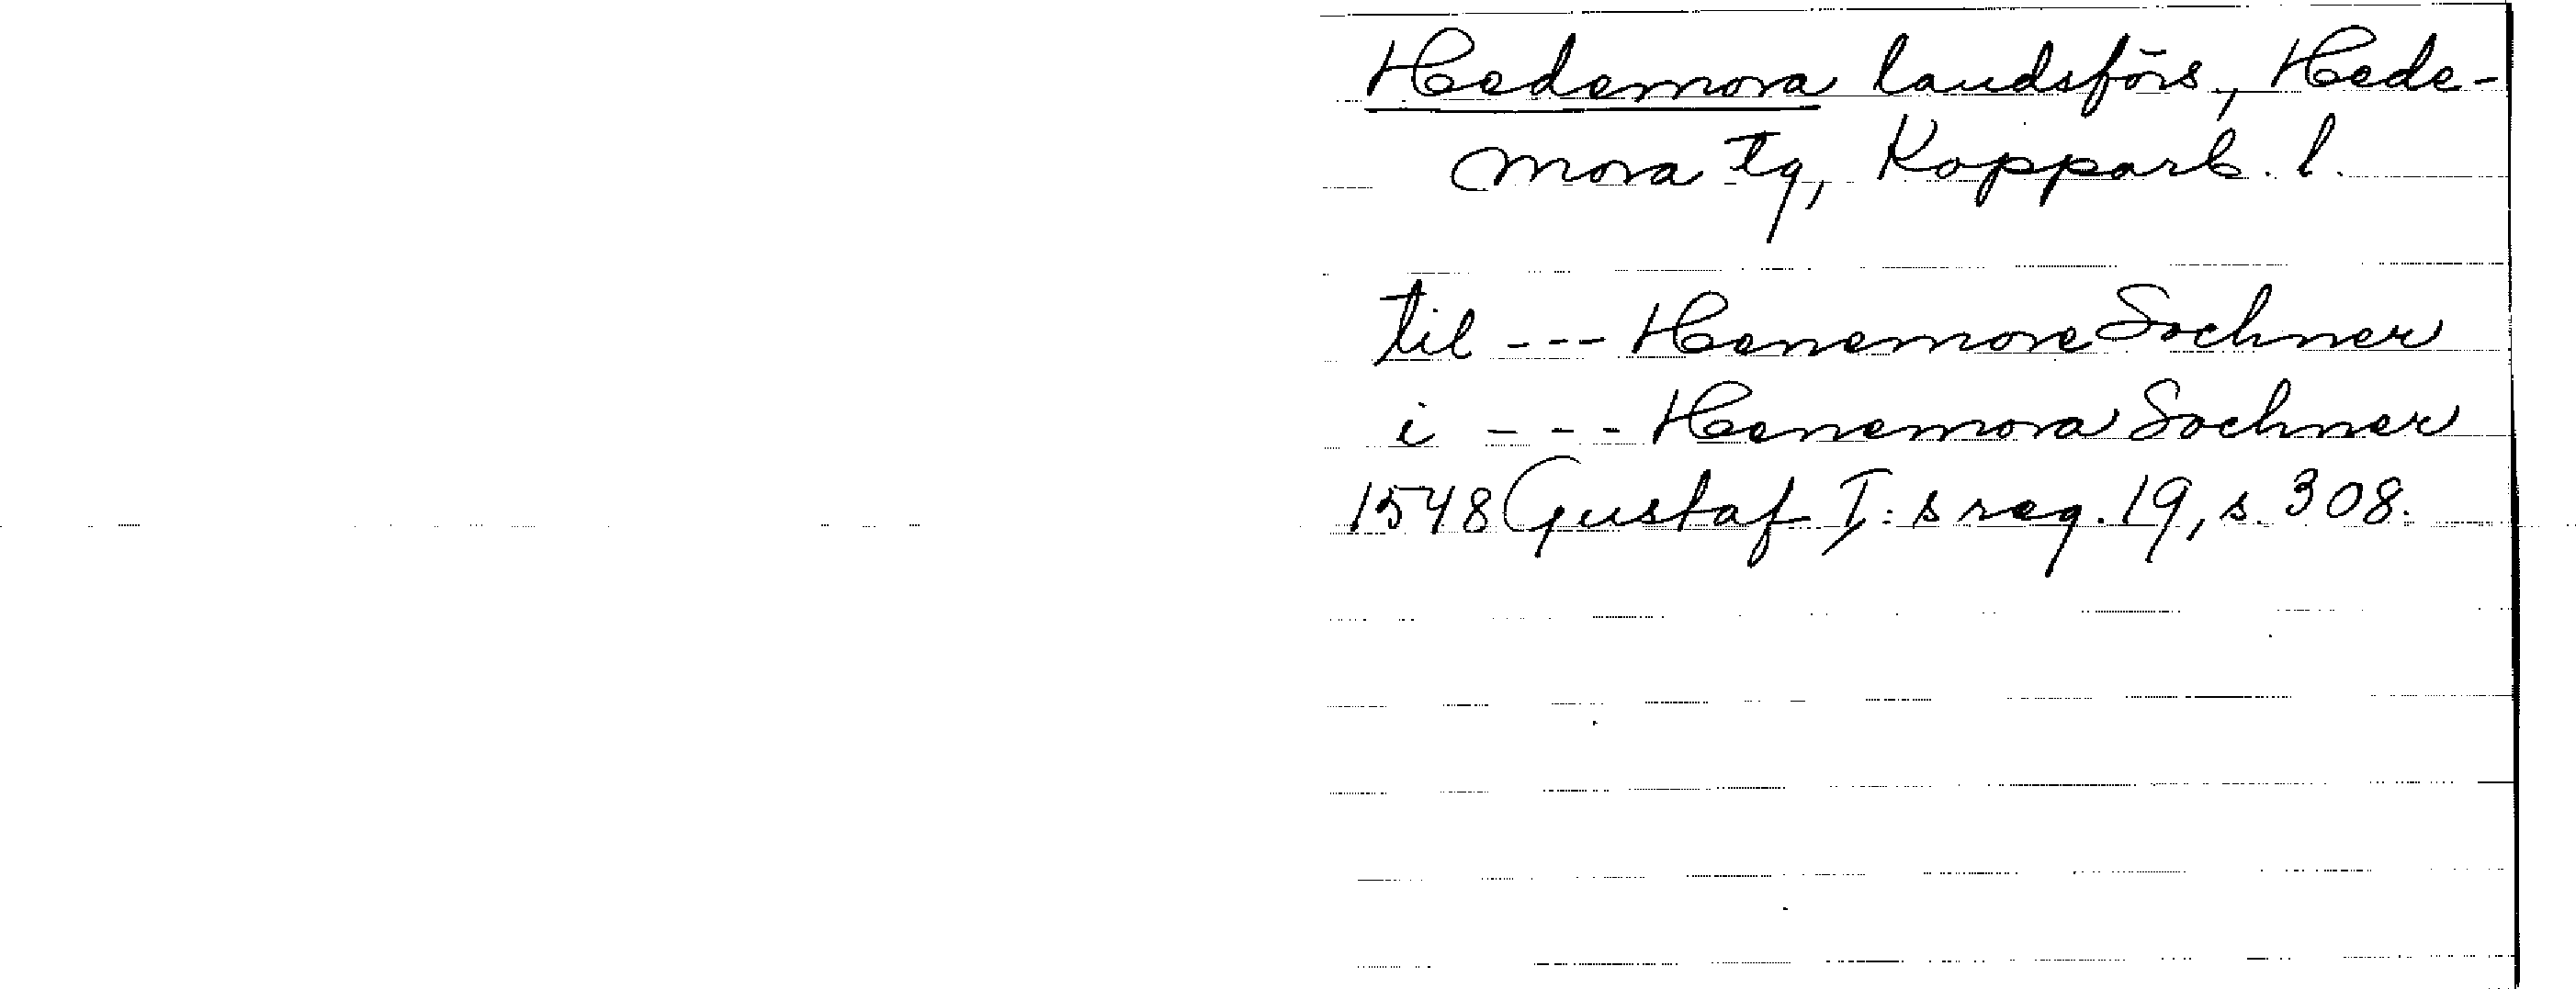 Hedemora landsförs, Hede-
mora tg, Kopparb. l.
til --- Henemore Sochner
i --- Henemora Sochner
1548 Gustaf I:s reg. 19, s. 308.